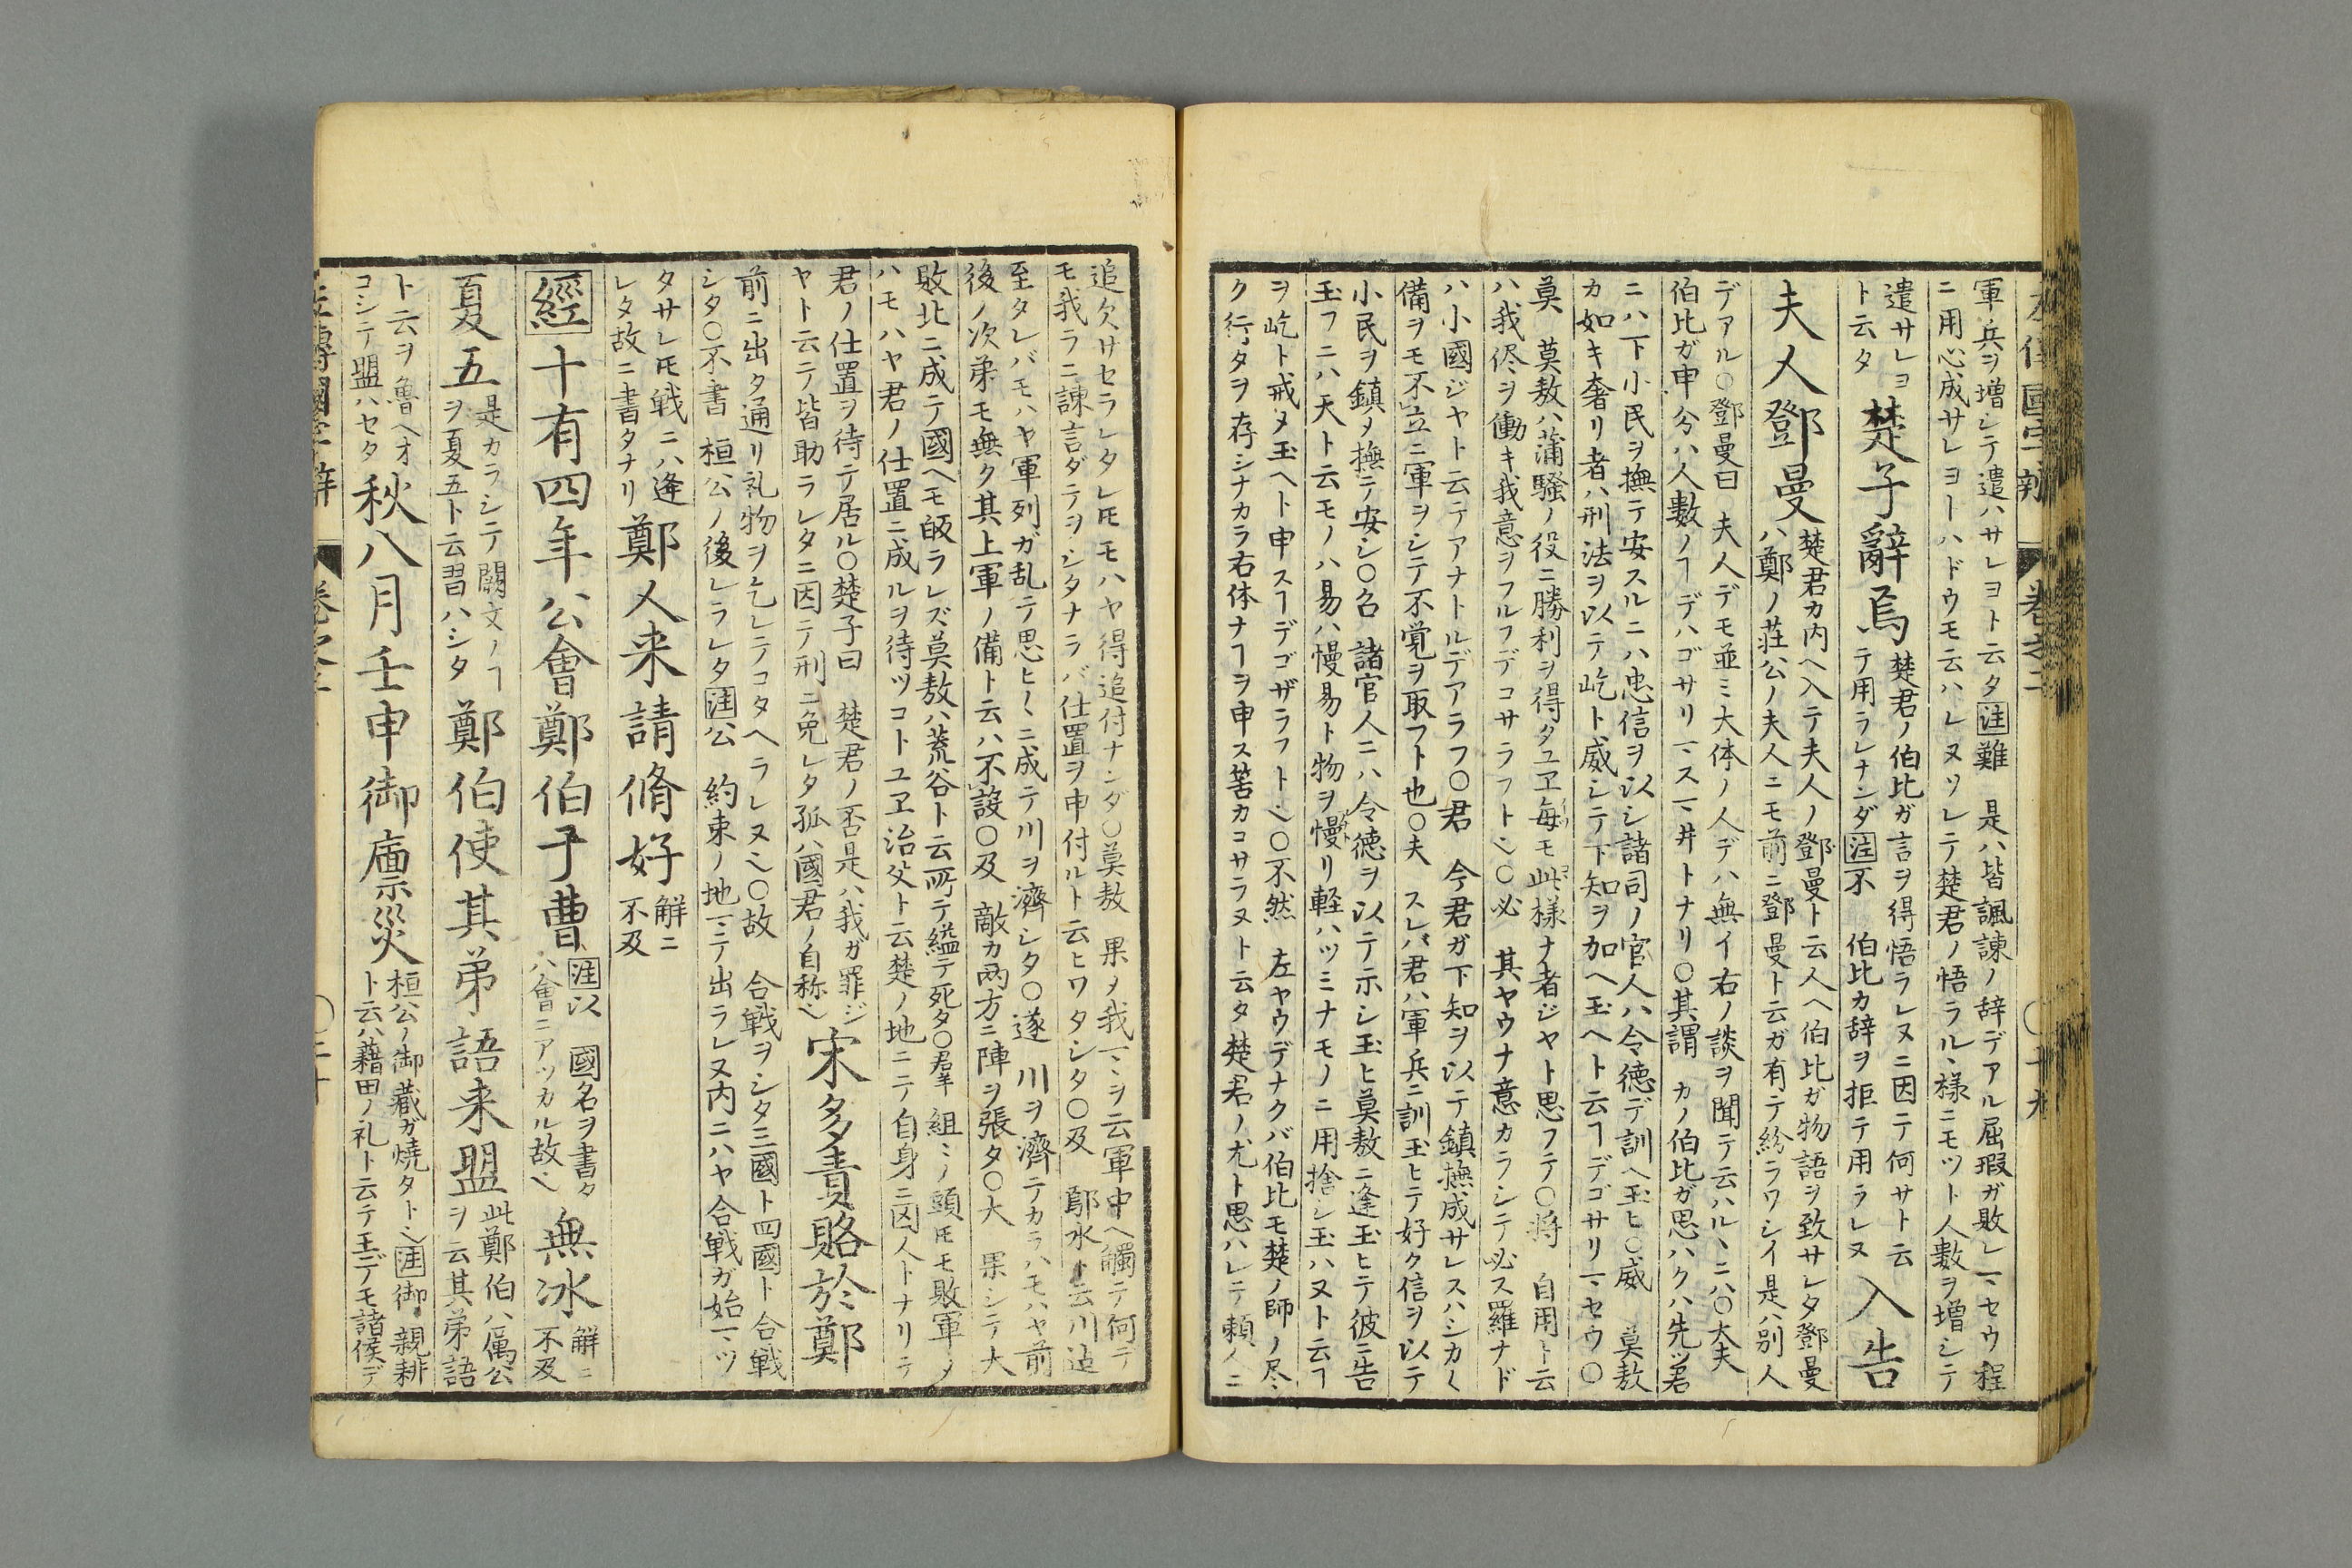 左傳國字解 卷之二 ○十九
軍兵ヲ増シテ遣ハサレヨト云タ注難 是ハ皆諷諫ノ辞デアル屈瑕ガ敗レヿヽセウ程
ニ用心成サレヨトハドウモ云ハレヌソレニテ楚君ノ悟ラルヽ様ニモツト人數ヲ増シテ
遣サレヨ
ト云タ
楚子辭焉
楚君ノ伯比ガ言ヲ得悟ラレヌニ因テ何サト云
テ用ラレナンダ注不 伯比カ辞ヲ拒テ用ラレヌ
入告
夫人鄧曼
楚君カ内ヘ入テ夫人ノ鄧曼ト云人ヘ伯比ガ物語ヲ致サレタ鄧曼
ハ鄭ノ莊公ノ夫人ニモ前ニ鄧曼ト云ガ有テ紛ラワシイ是ハ別人
デアル○鄧曼曰 夫人デモ並ミ大体ノ人デハ無イ右ノ談ヲ聞テ云ハルヽニハ○大夫
伯比ガ申分ハ人數ノヿデハゴサリヿヽスヿヽ井トナリ○其謂 カノ伯比ガ思ハクハ先ヅ君
ニハ下小民ヲ撫テ安スルニハ忠信ヲ以シ諸司ノ官人ハ令徳デ訓ヘ玉ヒ○威 莫敖
カ如キ奢リ者ハ刑法ヲ以テ屹ト威シテ下知ヲ加ヘ玉ヘト云ヿデゴサリヿヽセウ○
莫 莫敖ハ蒲騷ノ役ニ勝利ヲ得タユヱ毎モ此様ナ者ジヤト思フテ○将 自用ト云
ハ我侭ヲ働キ我意ヲフルフデコサラフトヘ○必 其ヤウナ意カラシテ必ス羅ナド
ハ小國ジヤト云テアナトルデアラフ○君 今君ガ下知ヲ以テ鎮撫成サレスハシカ〱
備ヲモ不立ニ軍ヲシテ不覚ヲ取フト也○夫 スレバ君ハ軍兵ニ訓玉ヒテ好ク信ヲ以テ
小民ヲ鎮メ撫テ安シ○召 諸官人ニハ令徳ヲ以テ示シ玉ヒ莫敖ニ逢玉ヒテ彼ニ告
玉フニハ天ト云モノハ易ハ慢易ト物ヲ慢リ軽ハツミナモノニ用捨シ玉ハヌト云ヿ
ヲ屹ト戒メ玉ヘト申スヿデゴザラフトヘ○不然 左ヤウデナクバ伯比モ楚ノ師ノ尽ヽ
ク行タヲ存シナカラ右体ナヿヲ申ス筈カコサラヌト云タ楚君ノ尤ト思ハレテ頼人ニ
追欠サセラレタレ𪜈モハヤ得追付ナンダ○莫敖 果メ我ヿヽヲ云軍中ヘ觸テ何テ
モ我ラニ諫言ダテヲシタナラバ仕置ヲ申付ルト云ヒワタシタ○及 鄢水ト云川迠
至タレバモハヤ軍列ガ乱テ思ヒ〱ニ成テ川ヲ濟シタ○遂 川ヲ濟テカラハモハヤ前
後ノ次弟モ無ク其上軍ノ備ト云ハ不設○及 敵カ両方ニ陣ヲ張タ○大 果シテ大
敗北ニ成テ國ヘモ皈ラレズ莫敖ハ荒谷ト云所テ縊テ死タ○羣 組ミノ頭𪜈モ敗軍ノ
ハモハヤ君ノ仕置ニ成ルヲ待ツコトユヱ治父ト云楚ノ地ニテ自身ニ囚人トナリテ
君ノ仕置ヲ待テ居ル○楚子曰 楚君ノ否是ハ我ガ罪ジ
ヤト云テ皆助ラレタニ因テ刑ニ免レタ孤ハ國君ノ自称ヘ
宋多責賂於鄭
前ニ出タ通リ礼物ヲ乞レテコタヘラレヌヘ○故 合戦ヲシタ三國ト四國ト合戦
シタ○不書 桓公ノ後レラレタ注公 約束ノ地ヿヽテ出ラレヌ内ニハヤ合戦ガ始ヿヽツ
タサレ𪜈戦ニハ逢
レタ故ニ書タナリ
鄭人来請脩好
解ニ
不及
經十有四年公會鄭伯于曹
注以 國名ヲ書タ
ハ會ニアツカル故ヘ
無冰
解ニ
不及
夏五
是カラシテ闕文ノヿ
ヲ夏五ト云習ハシタ
鄭伯使其弟語来盟
此鄭伯ハ厲公
ヲ云其弟語
ト云ヲ魯ヘオ
コシテ盟ハセタ
秋八月壬申御廩災
桓公ノ御蔵ガ焼タトヘ注御 親耕
ト云ハ藉田ノ礼ト云テ王デモ諸侯デ
左傳國字解 卷之二 ○二十